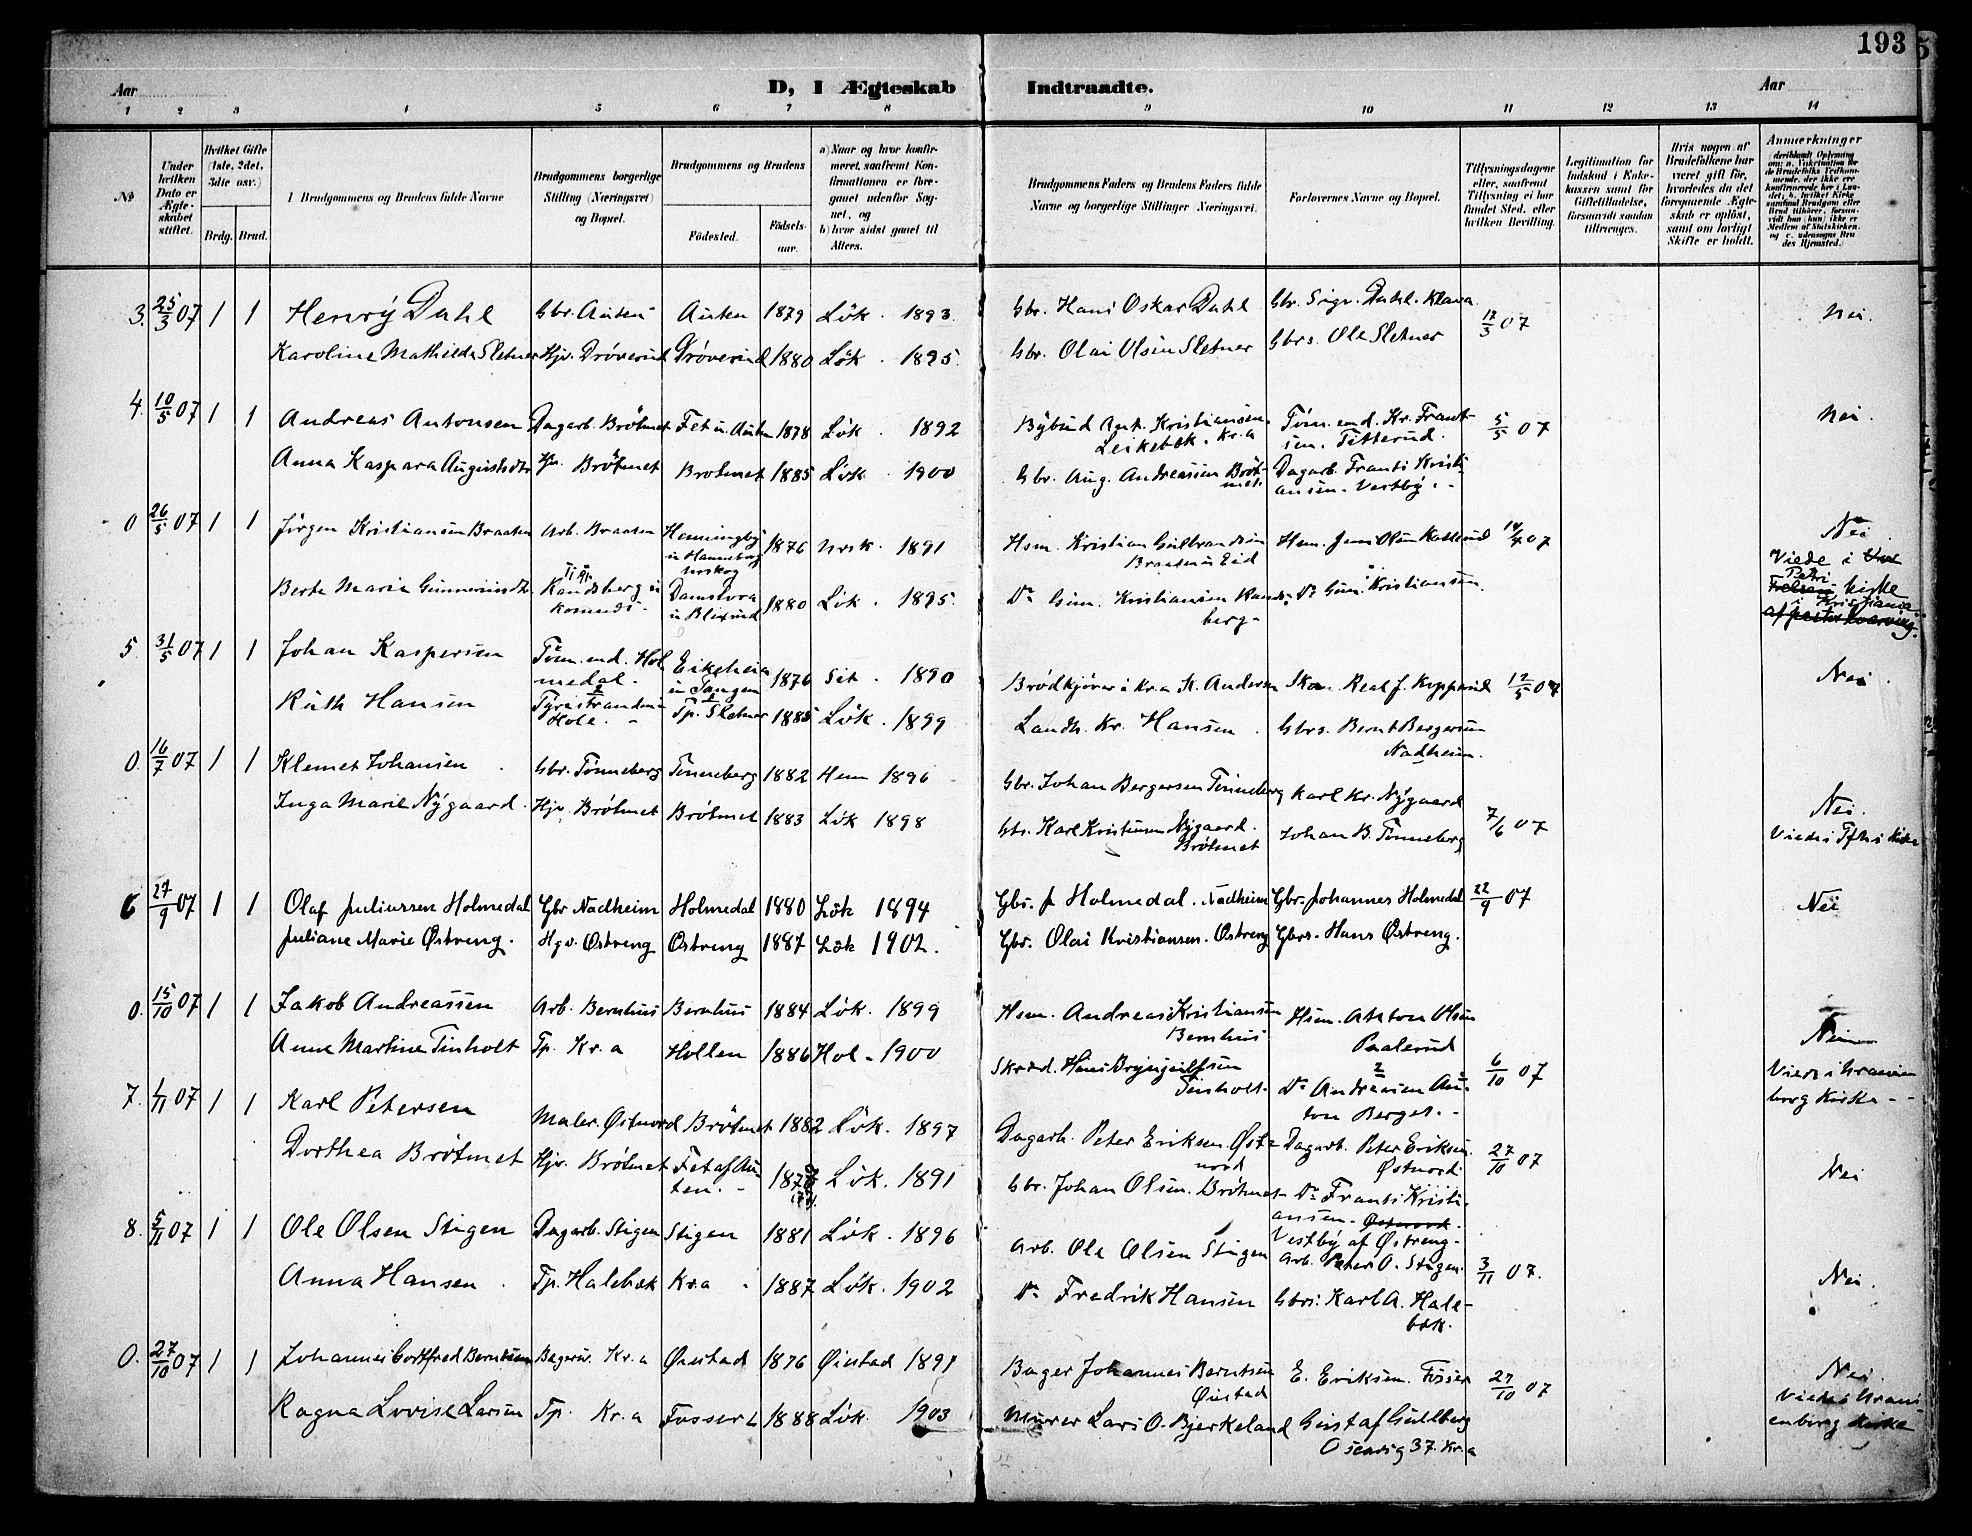 193
Aar
D, I Ægteskab Indtraadte.
Aar
1 2 3 4 5 6 7 8 9 10 11 12 13 14
No
Under hvilken Dato er Ægteskabet stiftet.
Hvilket Gifte (1ste, 2det, 3die osv.)
Brdg. Brud.
I Brudgommens og Brudens fulde Navne
Brudgommens borgerlige Stilling (Næringsvei) og Bopæl.
Brudgommens og Brudens
Fødested. Fødselsaar.
a) Naar og hvor konfirmeret, saafremt Konfirmationen er foregaaet udenfor Sognet, og
b) hvor sidst gaaet til Alters.
Brudgommens Faders og Brudens Faders fulde Navne og borgerlige Stillinger Næringsvei.
Forlovernes Navne og Bopæl.
Tillysningsdagene eller, saafremt Tillysning ei har fundet Sted, efter hvilken Bevilling.
Legitimation for Indskud i Enkekassen samt for Giftetilladelse, forsaavidt saadan tiltrænges.
Hvis nogen af Brudefolkene har været gift før, hvorledes da det foregaaende Ægteskab er opløst, samt om lovligt Skifte er holdt.
Anmerkninger
3. 25/3 07 1 1 Henrÿ Dahl Gbr. Auten Auten 1879 Lök. 1893. Gbr. Hans Oskar Dahl Gbr. Sigv. Dahl. Klava 17/3 07 Nei.
Karoline Mathilde Sletner Hjv. Dröverud Dröverud 1880 Lök. 1895. Gbr. Olai Olsen Sletner Gbrs. Ole Sletner
4. 10/5 07 1 1 Andreas Antonsen Dagarb. Brötmet Fet u. Auten 1878 Lök. 1892 Bÿbud Ant. Kristiansen. Leikebæk. Kr.a Töm.md. Kr. Frantsen. Titterud. 5/5 07 Nei.
Anna Kaspara Augustsdtr Hjv. Brötmet Brötmet 1885 Lök 1900 Gbr. Aug. Andreassen Brötmet. Dagarb. Frants Kristiansen. Vestby.
0 26/5 07 1 1 Jörgen Kristiansen Braaten Arb. Braaten Henningbÿ u Hanneborg Urskog 1876 Ursk. 1891 Hsm. Kristian Gulbrandsen Braaten u Eid Hsm. Jens Olsen 14/4 07 Nei
Berte Marie Gunneriusdtr Tj. Randsberg u Dammtora u Blixrud 1880 Lök. 1895. Do Gun. Kristiansen Randsberg Do Gun. Kristiansen.
Viede i Petri Kirke i Kristiania
5. 31/5 07 1 1 Johan Kaspersen Töm.md. Holmedal. Eikeheia u Tangen 1876 Set. 1890 Brödkjörer i Kr.a K. Andersen 12/5 07 Nei.
Ruth Hansen Tyristranden Hole. Tp. Sletner 1885 Lök. 1899 Landh. Kr. Hansen Gbrs. Bernt Bergersen Nadheim.
0. 16/7 07 1 1 Klemet Johansen Gbr. Tönneberg Tönneberg 1882 Hem 1896 Gbr. Johan Bergersen Tönneberg Karl Kr. Nÿgaard 7/6 07 Nei.
Inga Marie Nÿgaard. Hjv. Brötmet Brötmet 1883 Lök 1898 Gbr. Karl Kristiansen Nÿgaard. Brötmet Johan B. Tönneberg
6 27/9 07 1 1 Olaf Juliussen Holmedal Gbr Nadheim Holmedal 1880 Lök 1894 Gbr. J Holmedal. Nadheim Gbr. Johannes Holmedal 22/9 07 Nei
Juliane Marie Østreng. Hgv. Østreng Østreng 1887 Lök 1902. Gbr. Olai Kristiansen. Østreng Gbrs. Hans Østreng.
0. 15/10 07 1 1 Jakob Andreassen Arb. Bernhus Bernhus 1884 Lök. 1899 Hsm. Andreas Kristiansen Bernhus Hsm. Anton Olsen Paalerud 6/10 07 Nei
Anne Martine Tinholt Tp. Kr.a Hollen 1886 Hol. 1900 Skræd. Hans Brynjulfsen Tinholt. Do Andreassen Anton Berget.
Viede i Uranienborg Kirke
7. 1/11 07 1 1 Karl Petersen Maler. Østnord Brötmet 1882 Lök. 1897 Dagarb. Peter Eriksen. Østnord Dagarb. Peter Eriksen. Østnord 27/10 07 Nei
Dorthea Brötmet Hjv. Brötmet Fet af Auten. Lök. 1891 Gbr. Johan Olsen. Brötmet Do Frants Kristiansen. Østnord. Vestby af Østreng.
8. 5/11 07 1 1 Ole Olsen Stigen Dagarb. Stigen Stigen 1881 Lök. 1896 Arb. Ole Olsen Stigen Arb. Peter O. Stigen. 3/11 07. Nei.
Anna Hansen Tp. Halebæk Kr.a 1887 Lök. 1902 Do Fredrik Hansen Gbrs. Karl A. Halebæk.
0. 27/10 07 1 1 Johannes Gottfred Berntsen Bagersv. Kr.a Øiestad 1876 Øiestad 1891 Bager Johannes Berntsen Øiestad E. Eriksen. Fosser 27/10 07 Nei.
Ragna Lovise Larsen Tp. Kr.a Fosser 1888 Lök. 1903 Murer Lars O. Bjerkeland Gustaf Gullberg Osenvig 37. Kr.a
Viede i Uranienborg Kirke